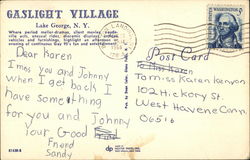 GASLIGHT VILLAGE
Lake George, N. Y.
Where period meller-dramas, silent movies, vaude-
ville acts, unusual rides, dioramic displays, antique
vehicles and furnishings, highlight an afternoon or
evening of continuous Gay 90's fun and entertainment.
Dear Karen
I miss you and Johnny
when I get back I
have something
for you and Johnny
Your Good Friend
Sandy
Post Card
To miss Karen Kenyon
102 Hickory St.
West Haven Conn.
06516